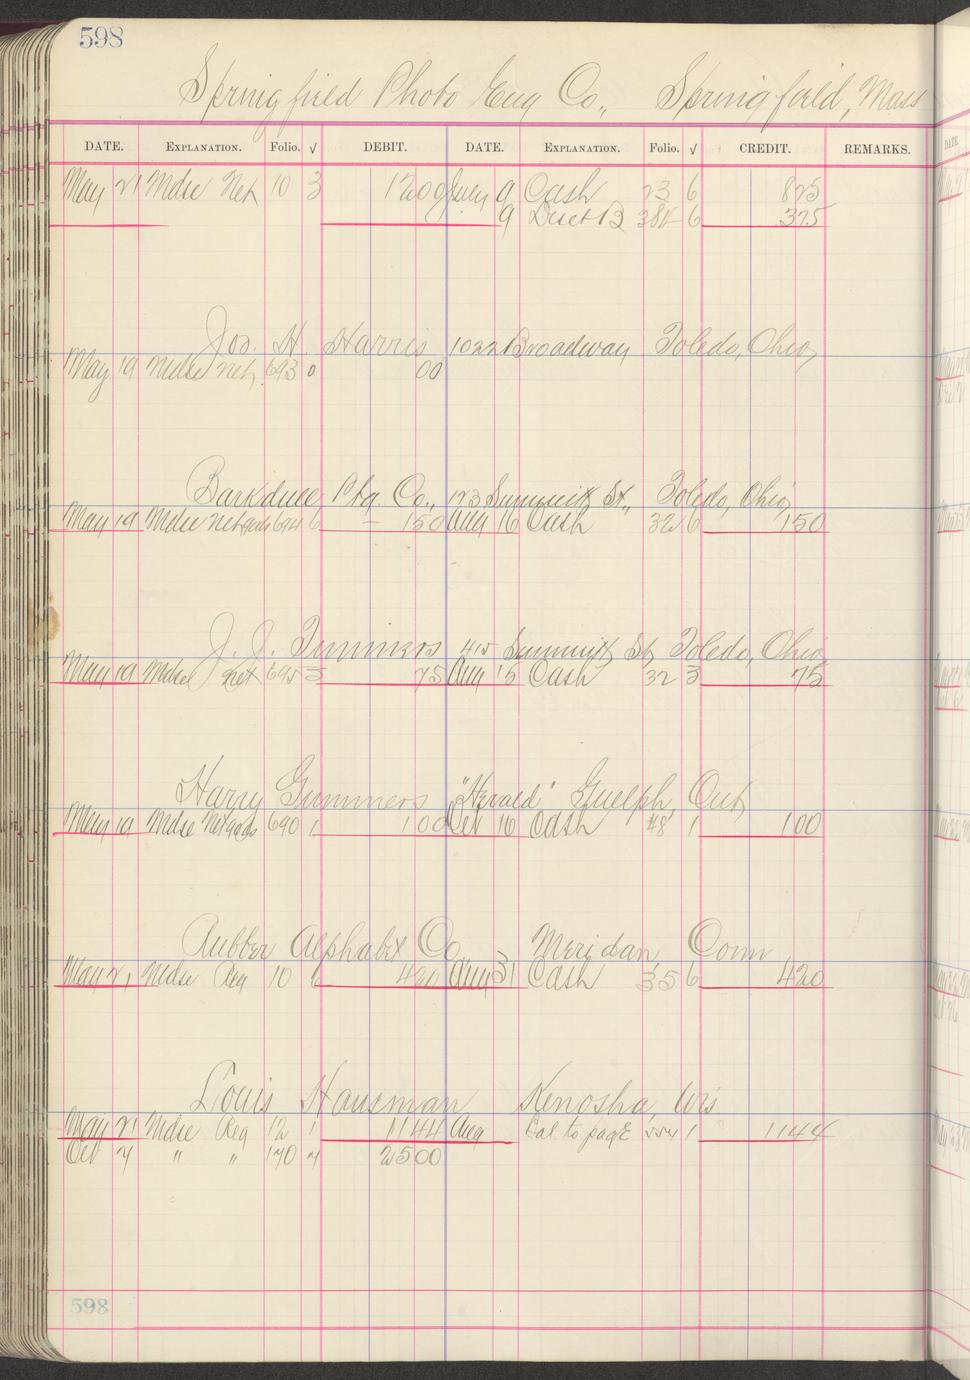 598
Springfield Photo Eng Co., Springfield, Mass
DATE. EXPLANATION. Folio. √ DEBIT. DATE. EXPLANATION. Folio. √ CREDIT. REMARKS.
May 21 Mdse Net 10 3 1200 July 9 Cash 23 6 825
9 384 6 375
Jos. H Harris 1022 Broadway Toledo, Ohio
May 19 Mdse net 693 0 00
Barkdull Ptg. Co., 123 Summitt St., Toledo, Ohio
May 19 Mdse net 694 6 — 150 Aug 16 Cash 32 6 150
J. J. Summers 415 Summitt St, Toledo, Ohio
May 19 Mdse net 695 3 75 Aug 15 Cash 32 3 75
Harry Gummers "Herald" Guelph, Ont,
May 19 Mdse Net 690 1 100 Oct 16 Cash 48 1 100
Rubber Alphabet Co Meridan, Conn
May 21 Mdse Reg 10 6 420 Aug 31 Cash 35 6 420
Louis Hausman Kenosha, Wis
May 21 Mdse Reg 12 1 1144 Aug Bal. to page 554 1 1144
Oct 7 " " 170 7 2500
598